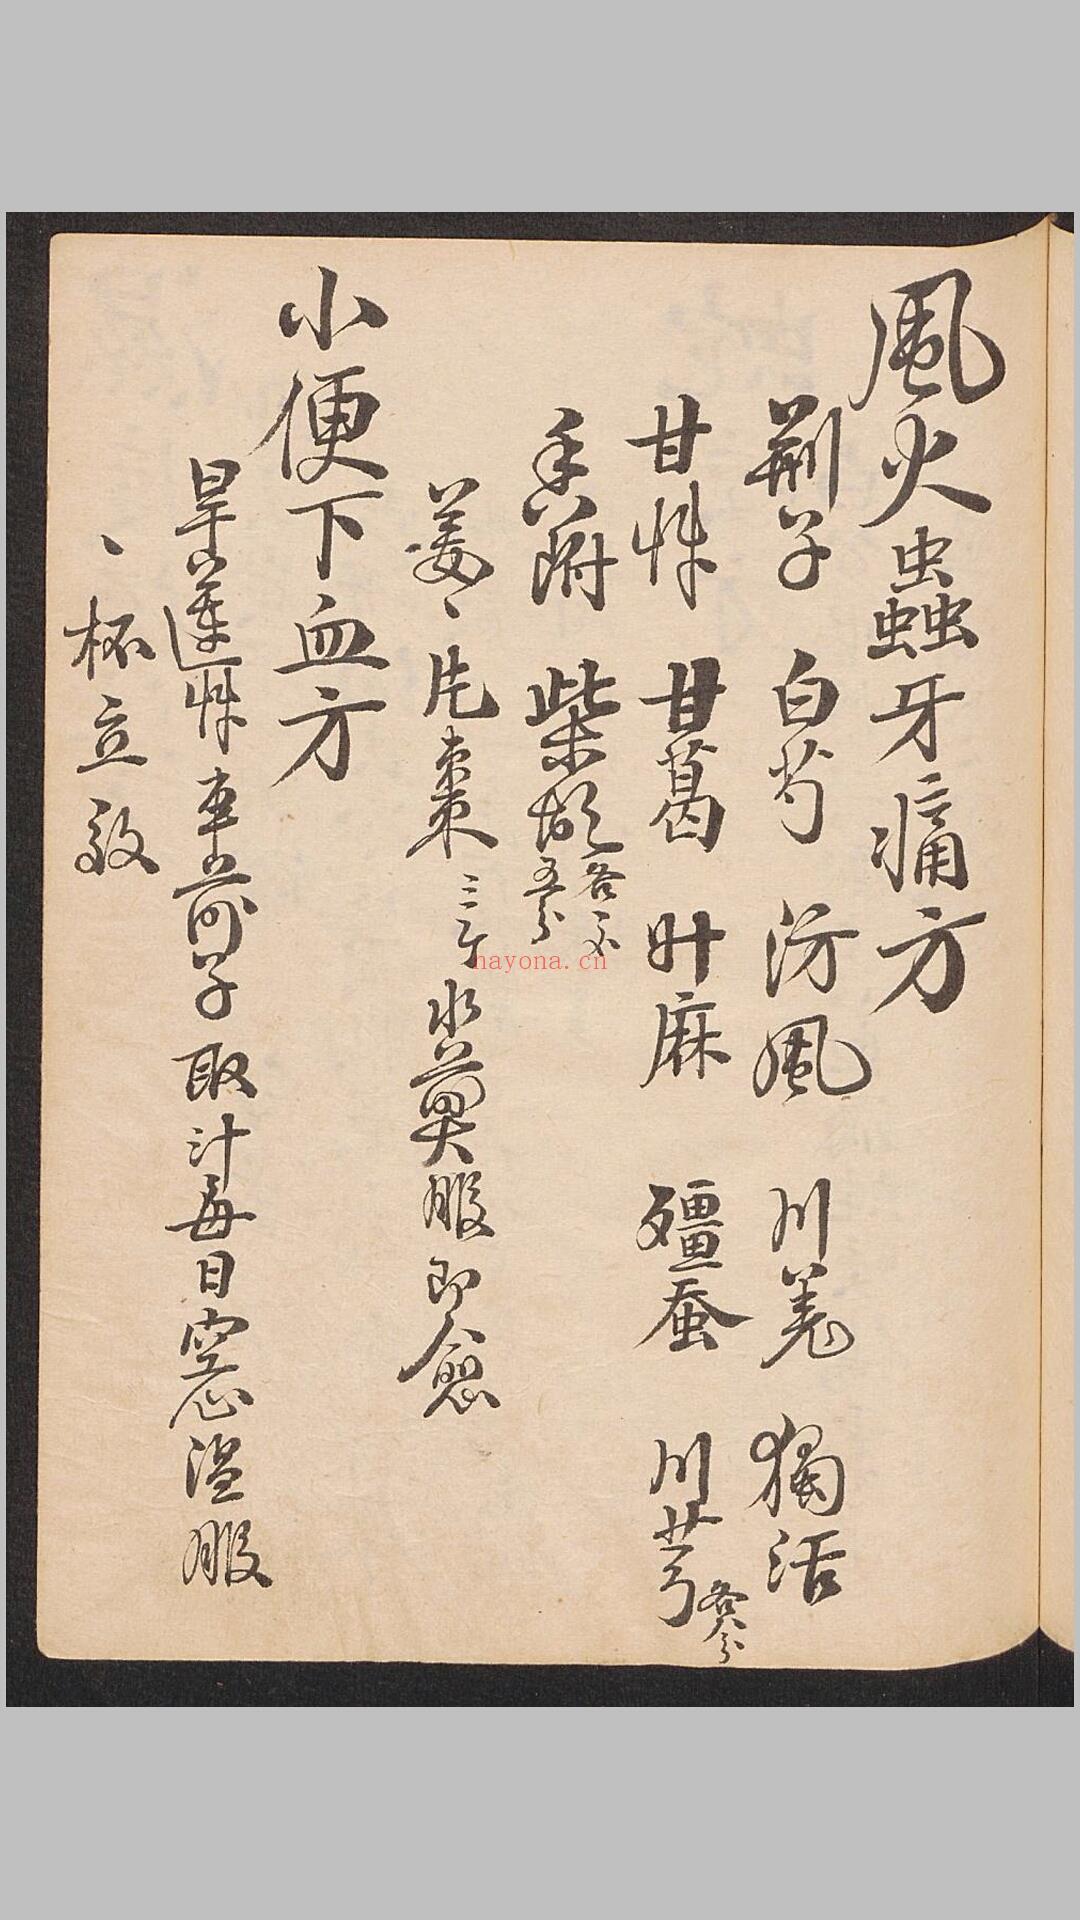 風火蟲牙痛方
荆子 白芍 汸風 川羌 獨活
甘艸 甘葛 升麻 殭蚕 川芎 各八分
香附 柴胡 各一不五分
姜、片棗三个水煎服即愈
小便下血方
旱蓮艸車前子取汁每日空心温服
、杯立效
hayona.cn